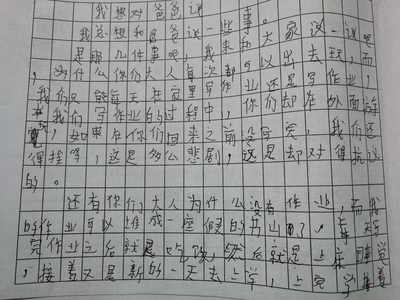 我想对爸爸说
我总想和爸爸说一些事。
是哪几件事呢，我来和大家说一说吧
，为什么你们大人每次都可以出去玩，而
我们只能每天在家里写作业还是写作业，
我们写作业的过程中，你们却在外面
，如果在你们回来之前没写完，我们还
得挨骂，这是多么悲剧，这是却对得抗议
的。
还有你们大人为什么没有作业，而我
的作业可以堆成一座假的书山了？，每天写
完作业之后就是吃饭，然后就是上床睡觉
，接着又是新的一天去上学，上完学接着